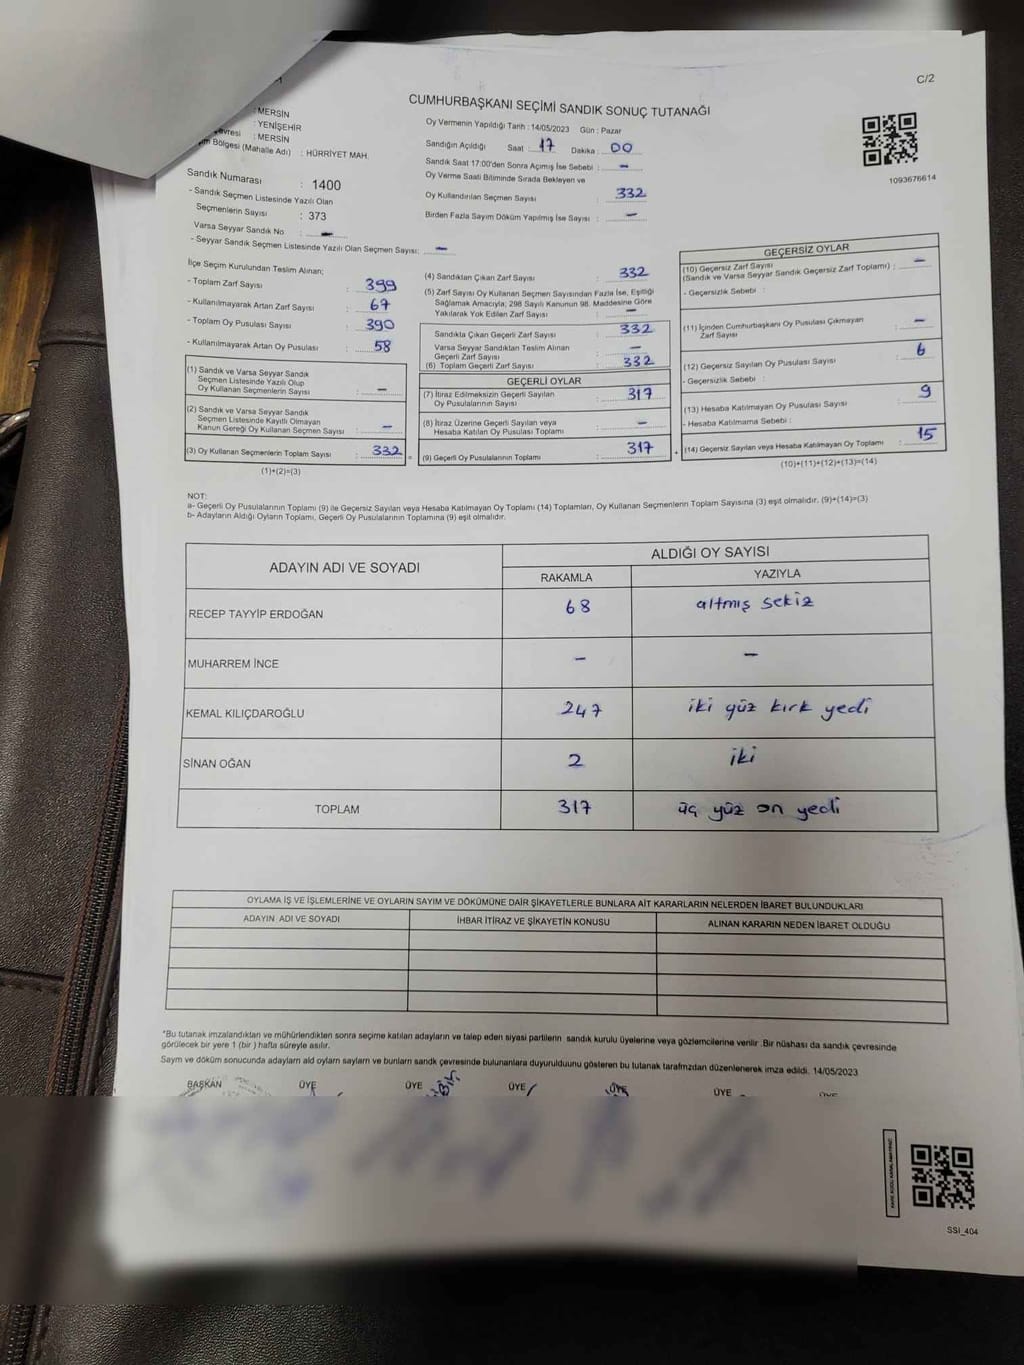 C/2
CUMHURBAŞKANI SEÇİMİ SANDIK SONUÇ TUTANAĞI
: MERSİN
: YENİŞEHİR
: MERSİN
Bölgesi (Mahalle Adı) : HÜRRİYET MAH.
Oy Vermenin Yapıldığı Tarih : 14/05/2023 Gün : Pazar
Sandığın Açıldığı Saat : 17 Dakika : 00
Sandık Saat 17:00'den Sonra Açımış İse Sebebi : -
Oy Verme Saati Bitiminde Sırada Bekleyen ve
Oy Kullandırılan Seçmen Sayısı : 332
Birden Fazla Sayım Döküm Yapılmış İse Sayısı : -
1093676614
Sandık Numarası : 1400
- Sandık Seçmen Listesinde Yazılı Olan
Seçmenlerin Sayısı : 373
Varsa Seyyar Sandık No : -
- Seyyar Sandık Seçmen Listesinde Yazılı Olan Seçmen Sayısı: -
İlçe Seçim Kurulundan Teslim Alınan;
- Toplam Zarf Sayısı : 399
- Kullanılmayarak Artan Zarf Sayısı : 67
- Toplam Oy Pusulası Sayısı : 390
- Kullanılmayarak Artan Oy Pusulası : 58
(1) Sandık ve Varsa Seyyar Sandık
Seçmen Listesinde Yazılı Olup
Oy Kullanan Seçmenlerin Sayısı : -
(2) Sandık ve Varsa Seyyar Sandık
Seçmen Listesinde Kayıtlı Olmayan
Kanun Gereği Oy Kullanan Seçmen Sayısı : -
(3) Oy Kullanan Seçmenlerin Toplam Sayısı : 332
(1)+(2)=(3)
(4) Sandıktan Çıkan Zarf Sayısı : 332
(5) Zarf Sayısı Oy Kullanan Seçmen Sayısından Fazla İse, Eşitliği
Sağlamak Amacıyla; 298 Sayılı Kanunun 98. Maddesine Göre
Yakılarak Yok Edilen Zarf Sayısı : -
Sandıkta Çıkan Geçerli Zarf Sayısı : 332
Varsa Seyyar Sandıktan Teslim Alınan
Geçerli Zarf Sayısı : -
(6) Toplam Geçerli Zarf Sayısı : 332
GEÇERLİ OYLAR
(7) İtiraz Edilmeksizin Geçerli Sayılan
Oy Pusulalarının Sayısı : 317
(8) İtiraz Üzerine Geçerli Sayılan veya
Hesaba Katılan Oy Pusulası Toplamı : -
(9) Geçerli Oy Pusulalarının Toplamı : 317
GEÇERSİZ OYLAR
(10) Geçersiz Zarf Sayısı
(Sandık ve Varsa Seyyar Sandık Geçersiz Zarf Toplamı) : -
- Geçersizlik Sebebi :
(11) İçinden Cumhurbaşkanı Oy Pusulası Çıkmayan
Zarf Sayısı : -
(12) Geçersiz Sayılan Oy Pusulası Sayısı : 6
- Geçersizlik Sebebi :
(13) Hesaba Katılmayan Oy Pusulası Sayısı : 9
- Hesaba Katılmama Sebebi :
(14) Geçersiz Sayılan veya Hesaba Katılmayan Oy Toplamı : 15
(10)+(11)+(12)+(13)=(14)
NOT:
a- Geçerli Oy Pusulalarının Toplamı (9) ile Geçersiz Sayılan veya Hesaba Katılmayan Oy Toplamı (14) Toplamları, Oy Kullanan Seçmenlerin Toplam Sayısına (3) eşit olmalıdır. (9)+(14)=(3)
b- Adayların Aldığı Oyların Toplamı, Geçerli Oy Pusulalarının Toplamına (9) eşit olmalıdır.
ADAYIN ADI VE SOYADI
ALDIĞI OY SAYISI
RAKAMLA YAZIYLA
RECEP TAYYİP ERDOĞAN 68 altmış sekiz
MUHARREM İNCE - -
KEMAL KILIÇDAROĞLU 247 iki yüz kırk yedi
SİNAN OĞAN 2 iki
TOPLAM 317 üç yüz on yedi
OYLAMA İŞ VE İŞLEMLERİNE VE OYLARIN SAYIM VE DÖKÜMÜNE DAİR ŞİKAYETLERLE BUNLARA AİT KARARLARIN NELERDEN İBARET BULUNDUKLARI
ADAYIN ADI VE SOYADI İHBAR İTİRAZ VE ŞİKAYETİN KONUSU ALINAN KARARIN NEDEN İBARET OLDUĞU
*Bu tutanak imzalandıktan ve mühürlendikten sonra seçime katılan adayların ve talep eden siyasi partilerin sandık kurulu üyelerine veya gözlemcilerine verilir .Bir nüshası da sandık çevresinde
görülecek bir yere 1 (bir ) hafta süreyle asılır.
Sayım ve döküm sonucunda adayların ald oyların sayların ve bunların sandk çevresinde bulunanlara duyurulduunu gösteren bu tutanak tarafmzdan düzenlenerek imza edildi. 14/05/2023
BAŞKAN ÜYE ÜYE ÜYE ÜYE ÜYE
SSI_404